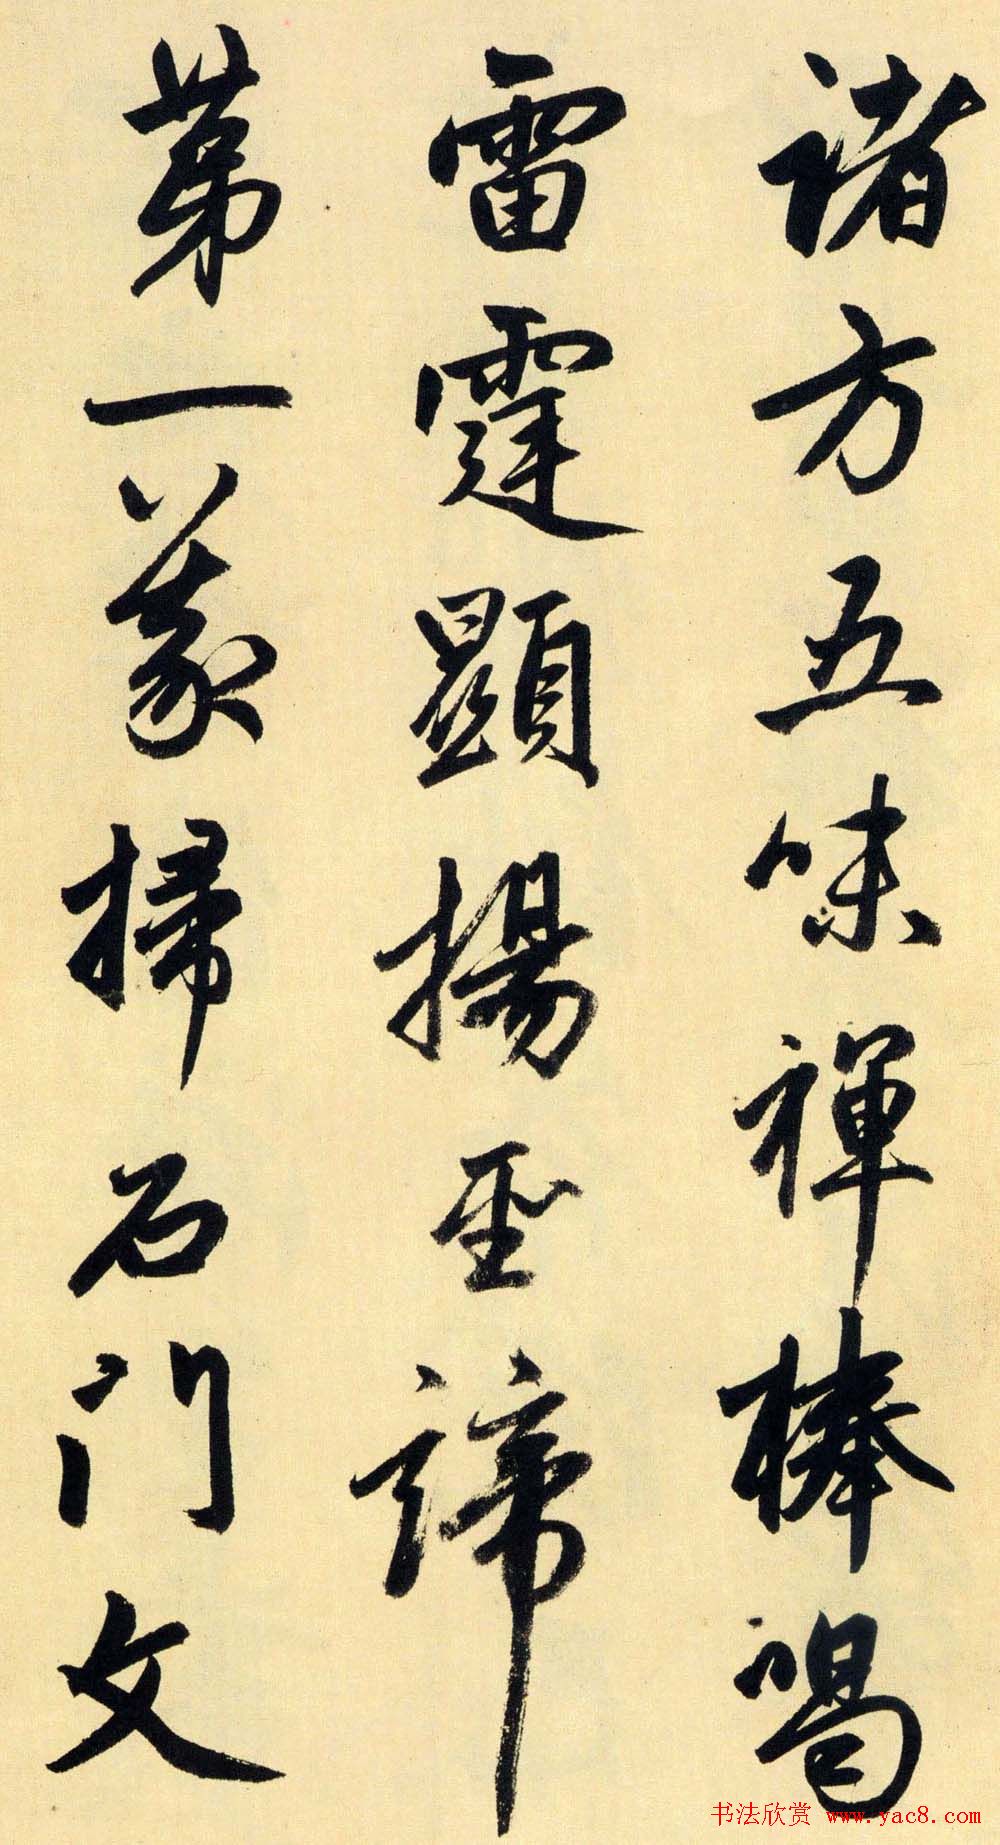 诸方五味禪棒喝
雷霆顯揚聖諦
第一義掃石門文
书法欣赏 www.yac8.com